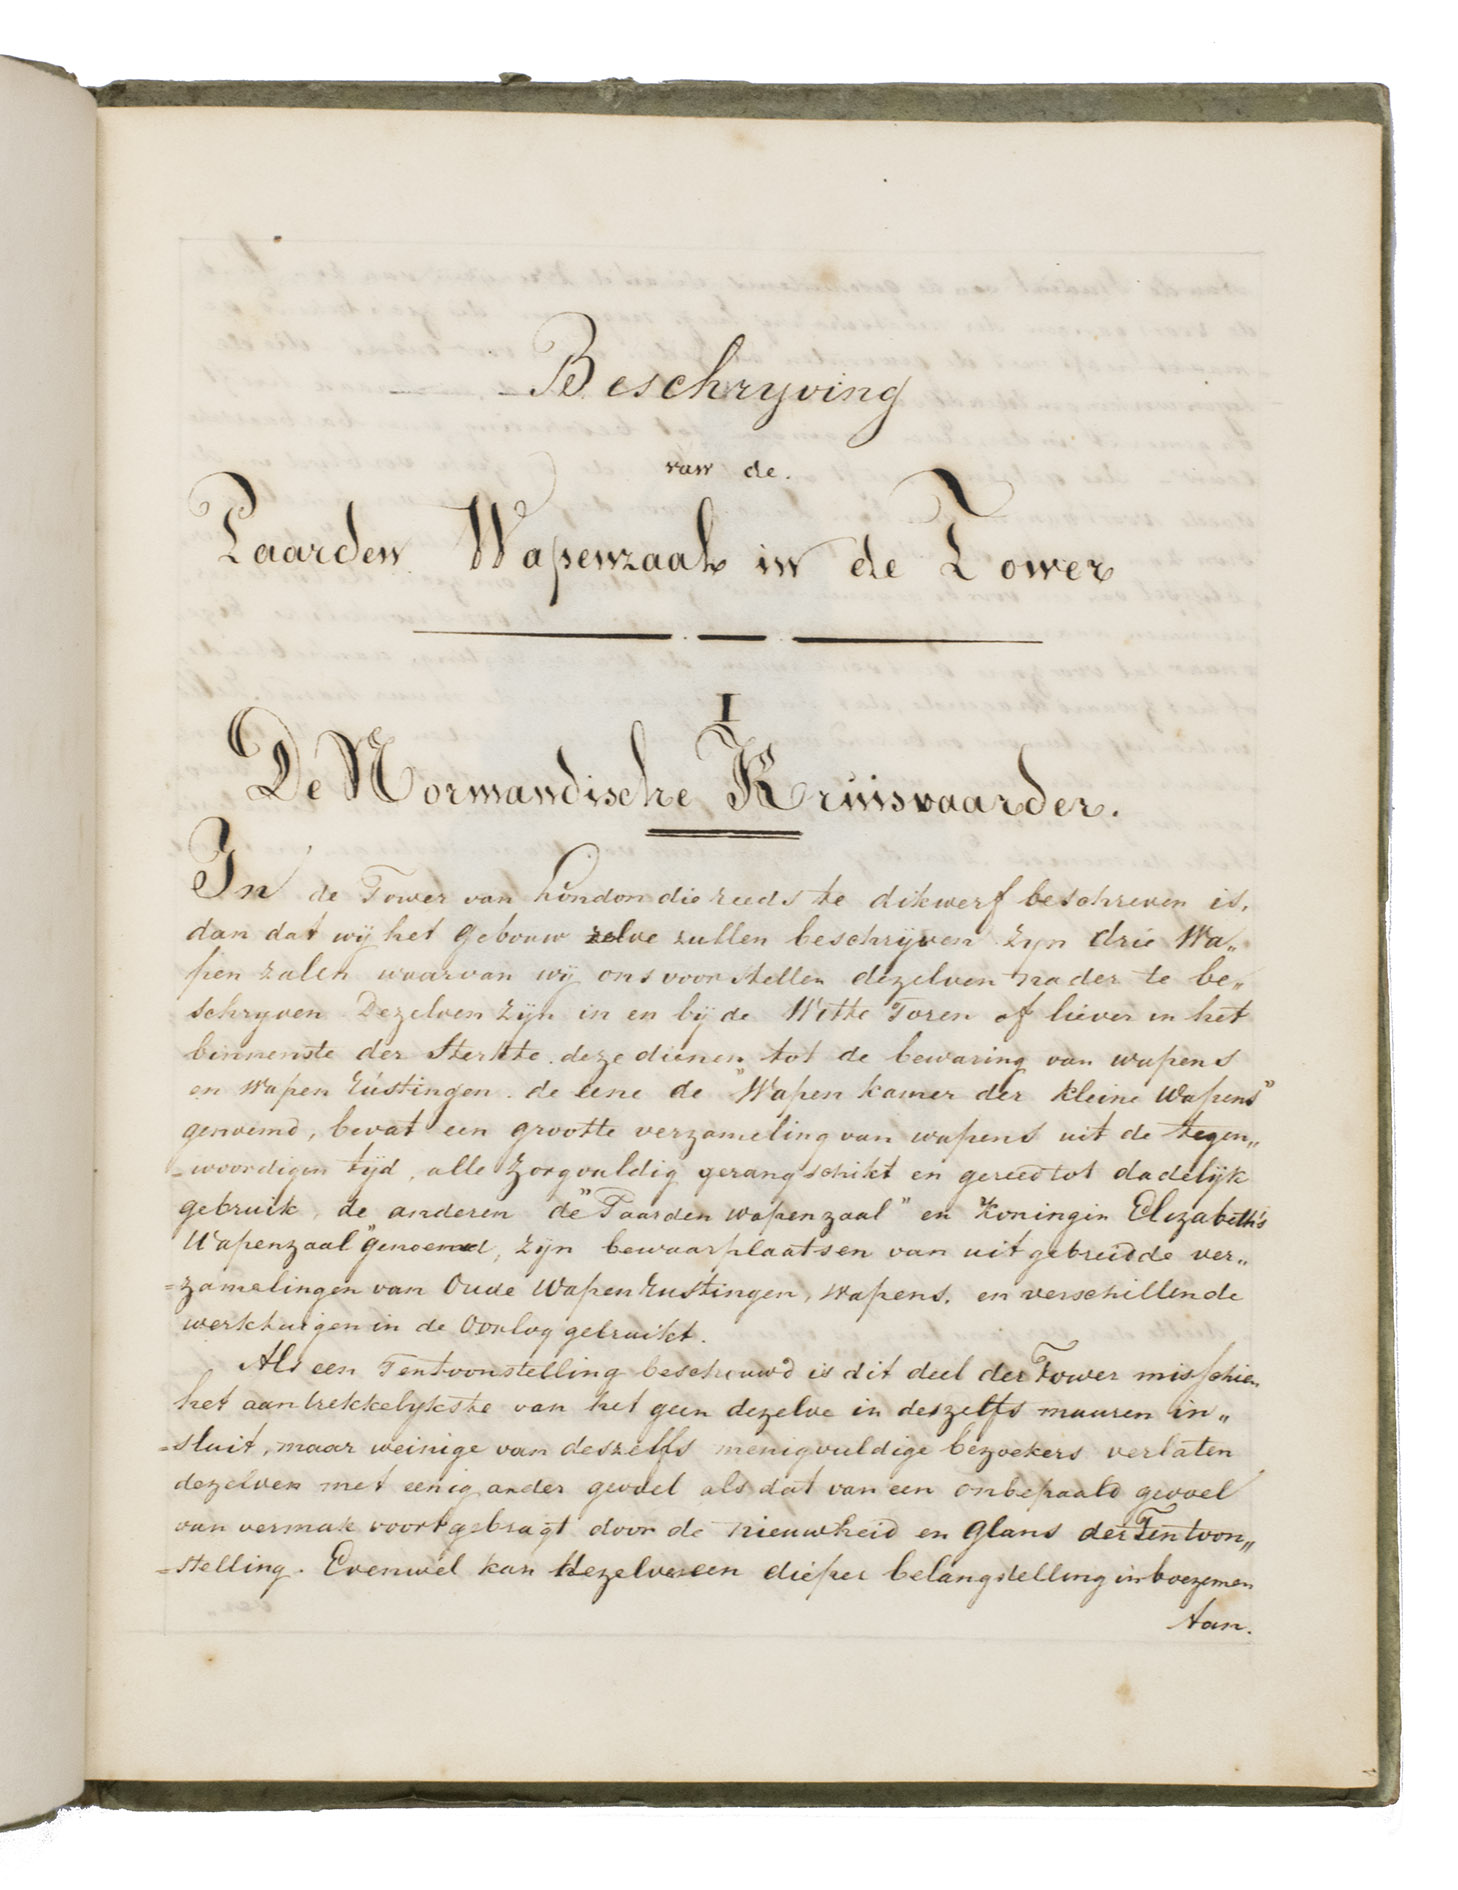 Beschryving
van de.
Paarden Wapenzaal in de Tower
I
De Normandische Kruisvaarder.
In de Tower van London die reeds te dikwerf beschreven is,
dan dat wij het gebouw zelve zullen beschrijven zyn drie Wa„
pen zalen waarvan wij ons voorstellen dezelven nader te be„
schryven Dezelven zijn in en bij de Witte Toren of liever in het
binnenste der Sterkte. deze dienen tot de bewaring van wapens
en Wapen rústingen. de eene de "Wapen kamer der kleine Wapens"
genoemd, bevat een grootte verzameling van wapens uit de tegen„
=woordigen tijd, alle zorgvuldig gerangschikt en gereed tot dadelijk
gebruik, de anderen de "Paarden wapenzaal" en Koningin Elizabeth's
Wapenzaal" genoemd, zijn bewaarplaatsen van uitgebreidde ver„
=zamelingen van Oude Wapenrustingen, wapens. en verschillende
werktuigen in de Oorlog gebruikt.
Als een Tentoonstelling beschouwd is dit deel der Tower misschien
het aantrekkelykste van het geen dezelve in deszelfs muuren in„
=sluit, maar weinige van deszelfs menigvuldige bezoekers verlaten
dezelven met eenig ander gevoel als dat van een onbepaald gevoel
van vermaak voortgebragt door de nieuwheid en glans der Tentoon„
=stelling. Evenwel kan dezelve een dieper belangstelling inboezemen
Aan.